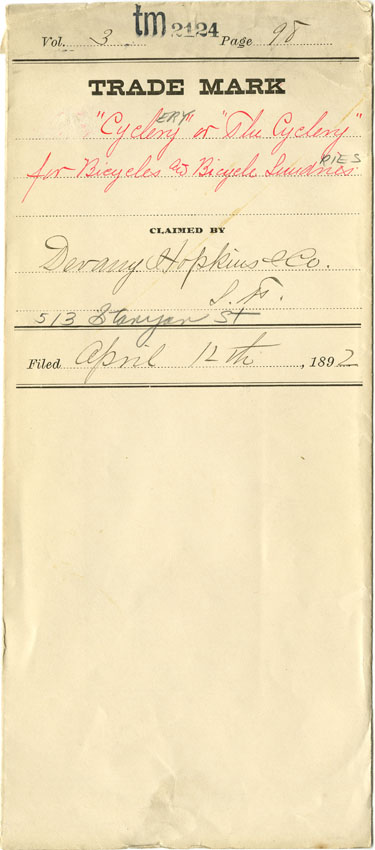 tm 2124
Vol. 3 Page 98
TRADE MARK
ERY
"Cyclery" or "The Cyclery"
RIES
for Bicycles and Bicycle Sundries
CLAIMED BY
Devany Hopkins & Co.
S. F.
513 Stanyan St
Filed April 12th, 1892